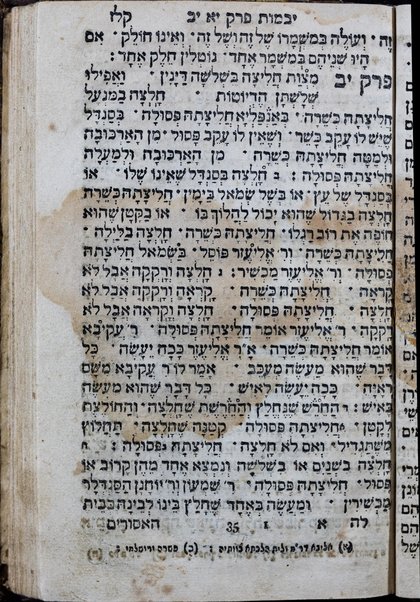 יבמות פרק יא יב קלז
זה · ועולה במשמרו של זה ושל זה · ואינו חולק · אם
היו שניהם במשמר אחד · נוטלין חלק אחד :
פרק יב מצות חליצה בשלשה דיינין · ואפילו
שלשתן הדיוטות · חלצה במנעל
חליצתה כשרה · באנפליא חליצתה פסולה · בסנדל
שיש לו עקב כשר · ושאין לו עקב פסול · מן הארכובה
ולמטה חליצתה כשרה · מן הארכובה ולמעלה
חליצתה פסולה : ב חלצה בסנדל שאינו שלו · או
בסנדל של עץ · או בשל שמאל בימין · חליצתה כשרה
חלצה בגדול שהוא יכול להלוך בו · או בקטן שהוא
חופה את רוב רגלו · חליצתה כשרה · חלצה בלילה ·
חליצתה כשרה · ור אליעזר פוסל · בשמאל חליצתה
פסולה · ור אליעזר מכשיר : ג חלצה ורקקה אבל לא
קראה · חליצתה כשרה · קראה ורקקה אבל לא
חלצה · חליצתה פסולה · חלצה וקראה אבל לא
רקקה · ר אליעזר אומר חליצתה פסולה · ר עקיבא
אומר חליצתה כשרה · א"ר אליעזר ככה יעשה · כל
דבר שהוא מעשה מעכב · אמר לו ר עקיבא משם
ראיה · ככה יעשה לאיש · כל דבר שהוא מעשה
באיש : ד החרש שנחלץ והחרשת שחלצה · והחולצת
לקטן · חליצתה פסולה · קטנה שחלצה · תחלוץ
משתגדיל · ואם לא חלצה · חליצתה פסולה :
חלצה בשנים או בשלשה ונמצא אחד מהן קרוב או
פסול · חליצתה פסולה · ר שמעון ור יוחנן הסנדלר
מכשירין · ומעשה באחד שחלץ בינו לבינה בבית
לה א 1 35 האסורים
(א) אליבא דר"מ ולית הלכתא כוותיה : (ב)